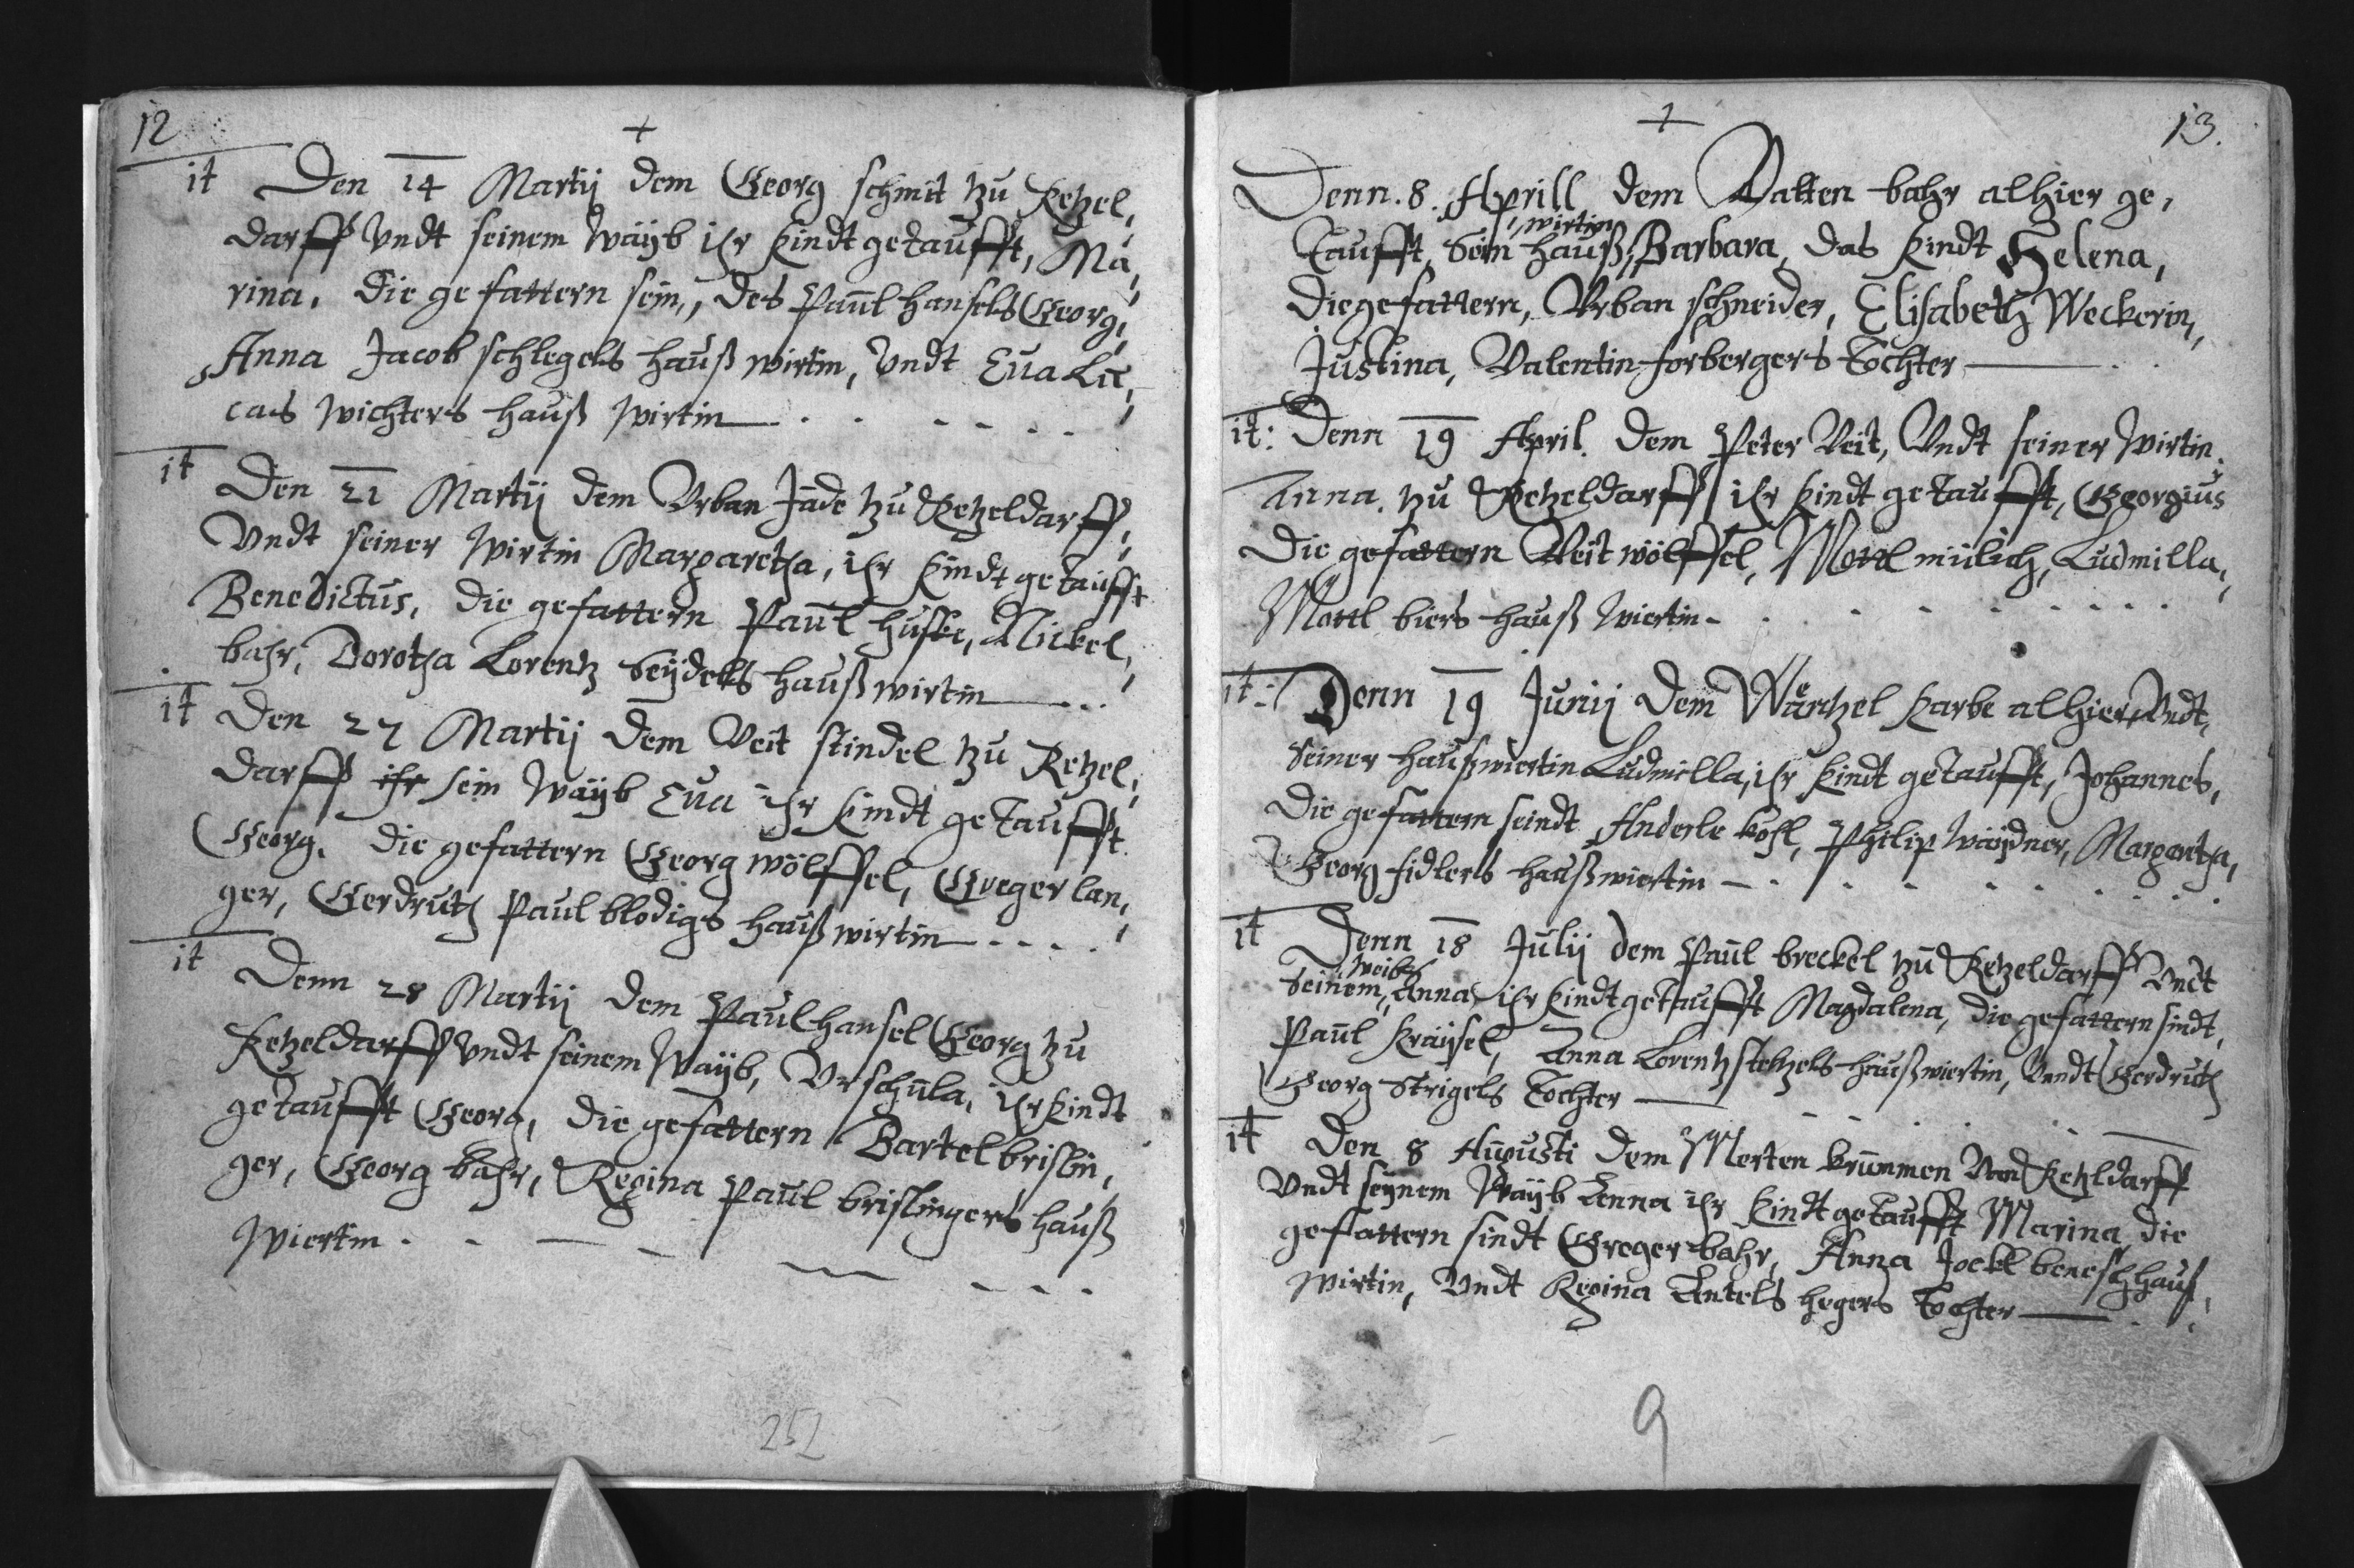 12
+
it Den 14 Martij dem Georg schmit zu Ketzel,
darff Vndt seinem Wäyb ihr kindt getaufft, Ma,
rina. Die gefattern sein, des Paul hansels Georg,
Anna Jacob schlegels hauß wirtin, Vndt Eva Lu,
cas Wichters hauß Wirtin
it Den 21 Martij dem Vrban Jäde zu Ketzeldarff,
Vndt seiner Wirtin Margaretha, ihr kindt getaufft
Benedictus, die gefattern Paul huske, Nickel,
bahr, Dorotha Lorentz Seydels haußwirtin
it Den 27 Martij dem Veit stindel zu Ketzel,
darff ihr sein Wäyb Eva ihr kindt getaufft
Georg. die gefattern Georg wölffel, Greger lan,
ger, Gerdruth Paul blodigs haußwirtin
it Denn 28 Martij dem Paul hansel Georg zu
Ketzeldarff Vndt seinem Wäyb, Vrschula, ihr kindt
getaufft Georg, die gefattern Bartel brislin,
ger, Georg bahr, Regina Paul brislingers hauß
Wiertin
252
+
13.
Denn. 8. Aprill dem Matten bahr alhier ge,
wirtin
taufft, Sein hauß, Barbara, das kindt Helena,
die gefattern, Vrban schneider, Elisabeth Weckerin,
Justina, Valentin forbergers Tochter
it: Denn 19 April. dem Peter Veit, Vndt seiner Wirtin
Anna. zu Ketzeldarff ihr kindt getaufft, Georgius
Die gefattern Veit wölffel, Mottl mülich, Ludmilla,
Mottl biers hauß Wiertin
it: Denn 19 Junij dem Wentzel karbe alhier Vndt,
Seiner haußwiertin Ludmilla, ihr kindt getaufft, Johannes,
Die gefattern seindt Anderle kohl, Philip Wäydner, Margaretha,
Georg fidlers haußwiertin
it Denn 18 Julij dem Paul breckel zu Ketzeldarff Vndt
weib
Seinem, Anna, ihr kindt getaufft Magdalena, die gefattern sindt,
Paul Kräysel, Anna Lorentz steltzels haußwiertin, Vndt Gerdruth
Georg Strigels Tochter
it Den 8 Augusti dem Merten krummen Von Ketzldarff
Vndt seynem Wäyb Anna ihr kindt getaufft Marina die
gefattern sindt Greger bahr, Anna Jockl benesch hauß,
wirtin, Vndt Regina Antels hegers Tochter
9